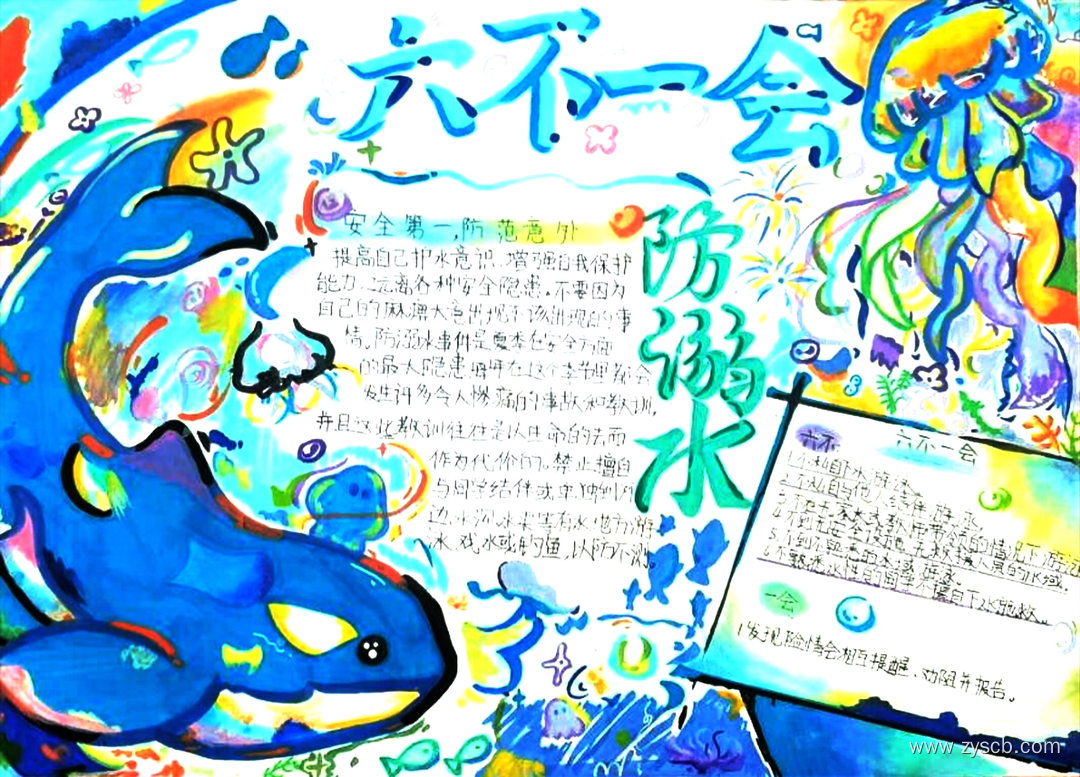 六不一会
防溺水
安全第一,防范意外
提高自己护水意识、增强自我保护
能力,远离各种安全隐患。不要因为
自己的麻痹大意出现不该出现的事
情。防溺水事件是夏季在安全方面
的最大隐患,每年在这个季节里都会
发生许多令人惨痛的事故和教训,
并且这些教训往往是以生命的去而
作为代价的。禁止擅自
与同学结伴或单独到
边、水沟、水渠等有水地方游
泳、戏水或钓鱼,以防不测。
六不一会
六不
1.不私自下水游泳。
2.不私自与他人结伴游泳。
3.不在无家长或教师带领的情况下游泳
4.不到无安全设施、无救援人员的水域。
5.不到不熟悉的水域游泳。
6.不熟悉水性的同学不擅自下水施救。
一会
1.发现险情会相互提醒、劝阻并报告。
www.zyscb.com